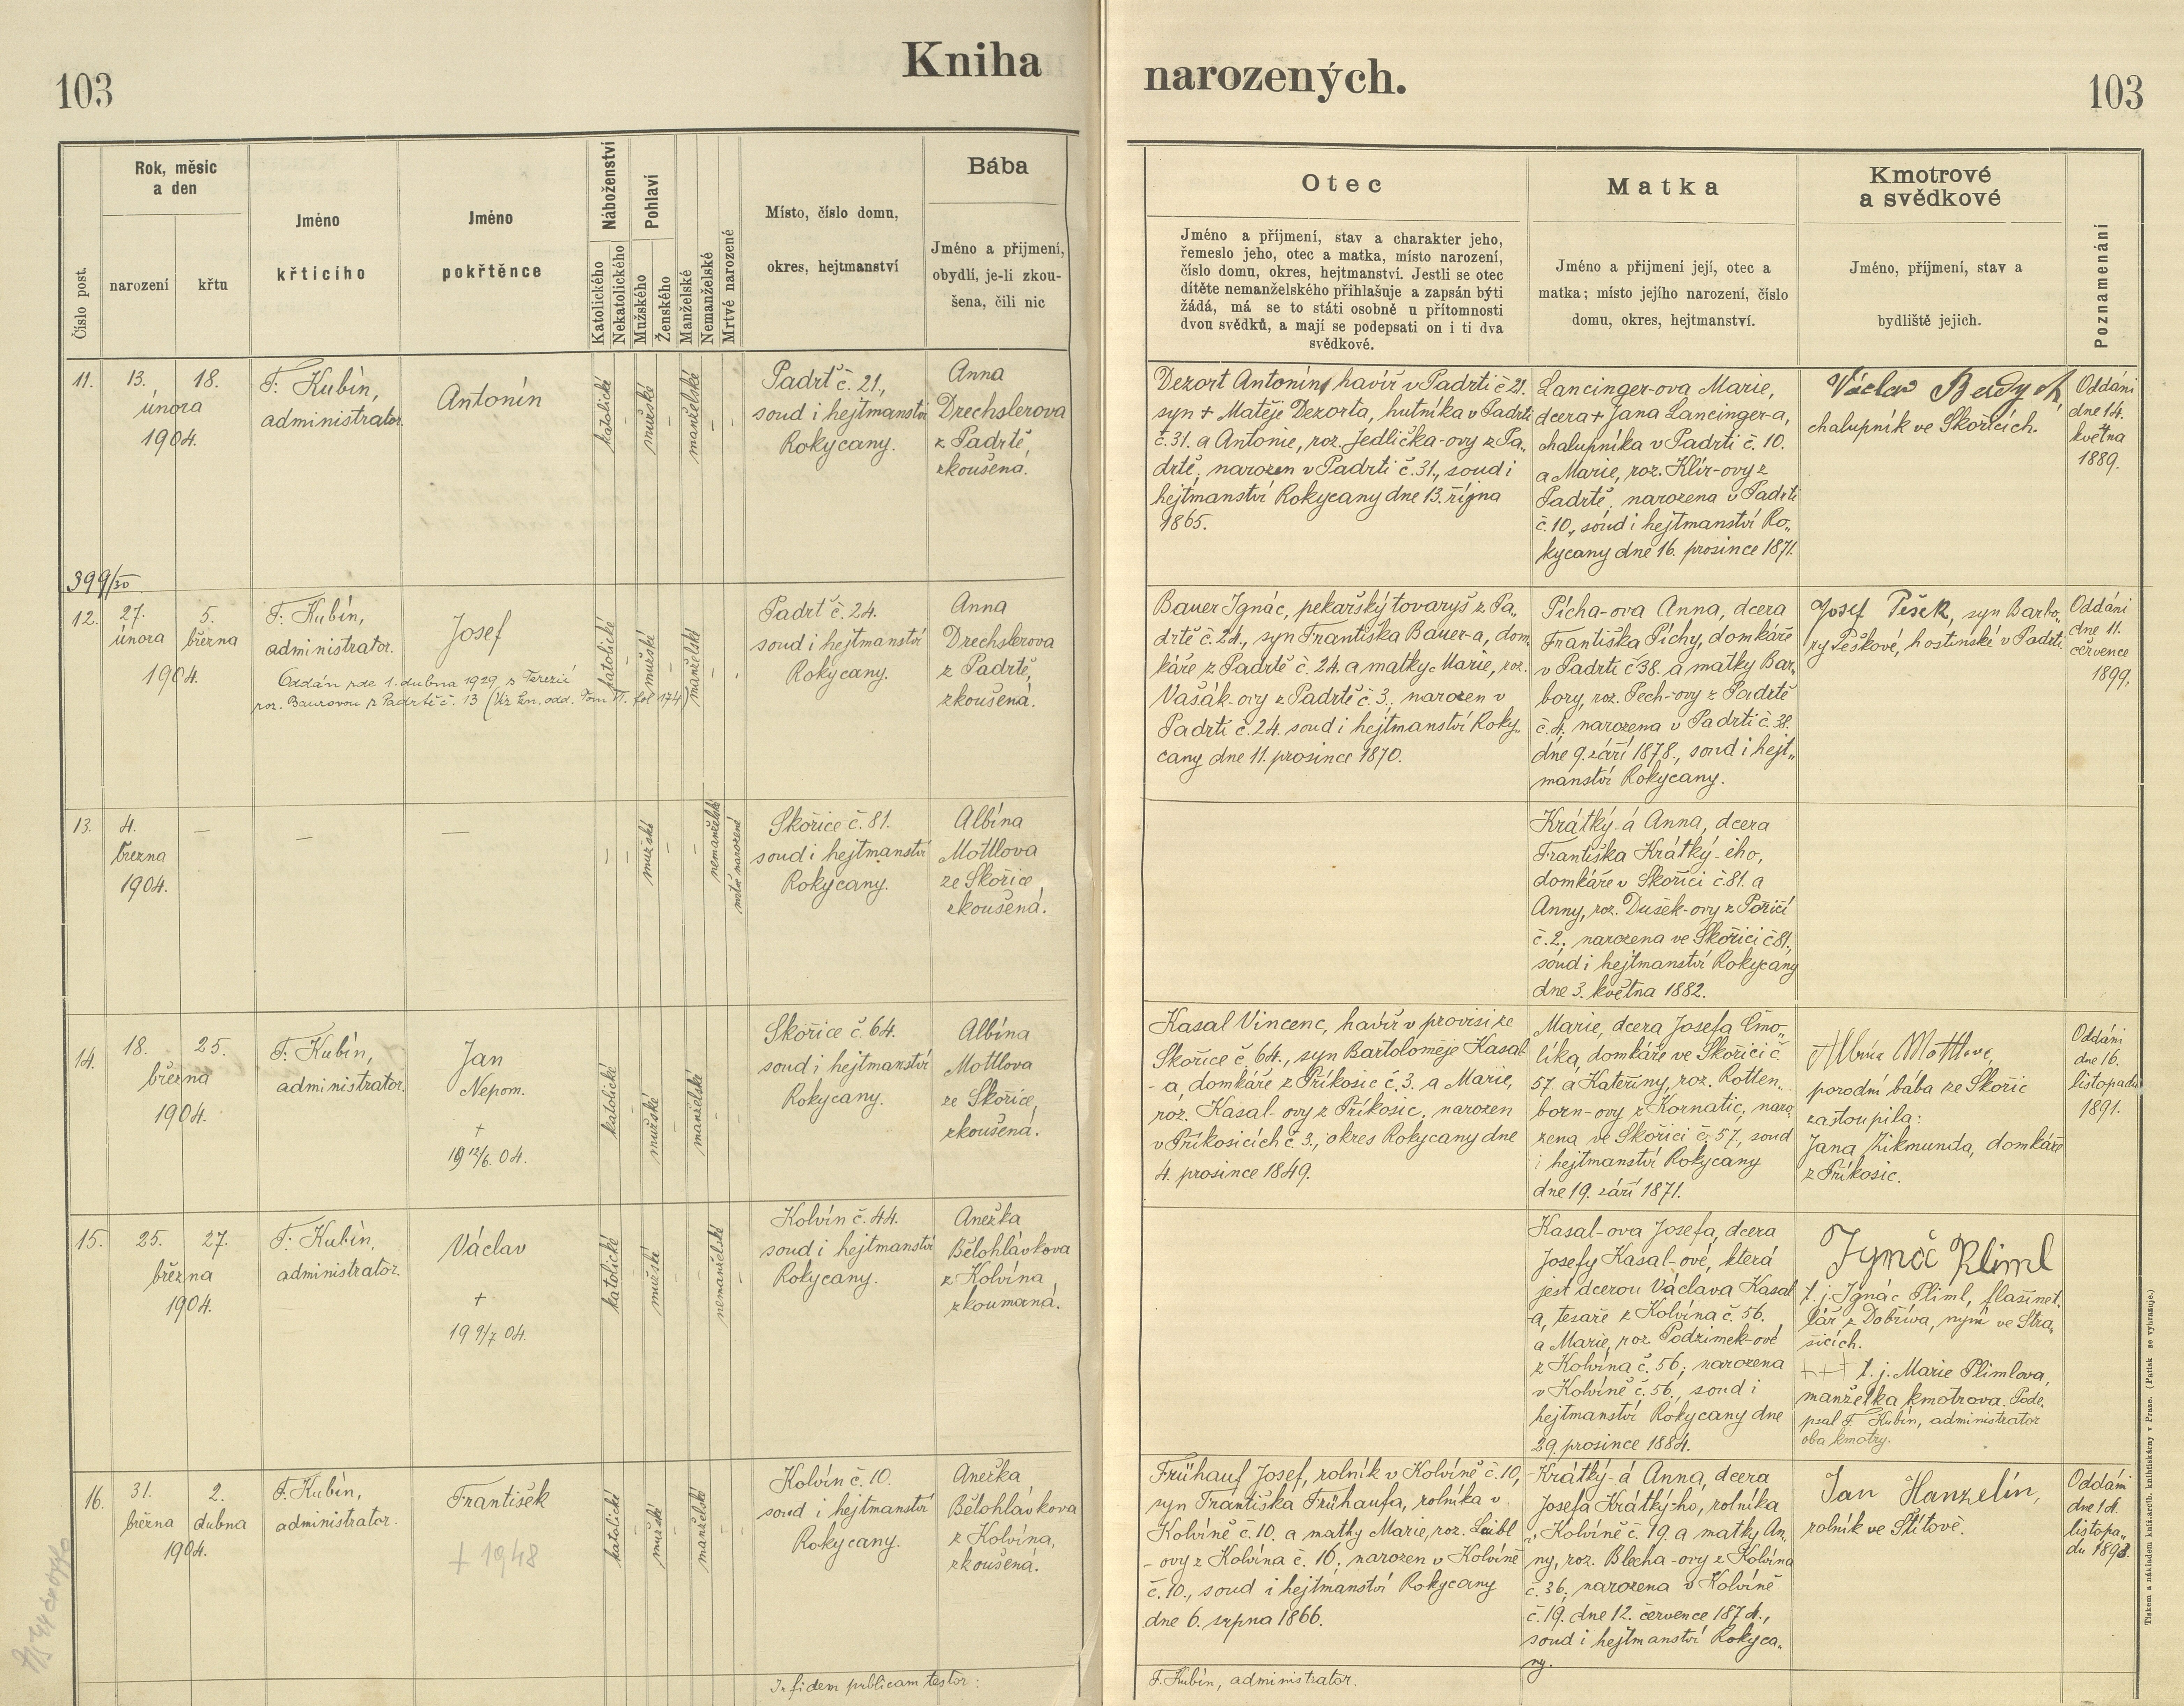 103
Kniha
narozených.
103
Číslo post.
Rok, měsíc
a den
narození
křtu
Jméno
křtícího
Jméno
pokřtěnce
Náboženství
Katolického
Nekatolického
Pohlaví
Mužského
Ženského
Manželské
Nemanželské
Mrtvé narozené
Místo, číslo domu,
okres, hejtmanství
Bába
Jméno a přijmení,
obydlí, je-li zkou-
šena, čili nic
Otec
Jméno a příjmení, stav a charakter jeho,
řemeslo jeho, otec a matka, místo narození,
číslo domu, okres, hejtmanství. Jestli se otec
dítěte nemanželského přihlašuje a zapsán býti
žádá, má se to státi osobně u přítomnosti
dvou svědků, a mají se podepsati on i ti dva
svědkové.
Matka
Jméno a přijmení její, otec a
matka; místo jejího narození, číslo
domu, okres, hejtmanství.
Kmotrové
a svědkové
Jméno, příjmení, stav a
bydliště jejich.
Poznamenání
11.
13.
18.
února
1904.
F. Kubín,
administrator.
Antonín
katolické
mužské
manželské
Padrť č. 21.,
soud i hejtmanství
Rokycany.
Anna
Drechslerova
z Padrtě,
zkoušená.
Dezort Antonín, havíř v Padrti č 21.
syn + Matěje Dezorta, hutníka v Padrti
č. 31. a Antonie, roz. Jedlička-ovy z Pa„
drtě, narozen v Padrti č. 31., soud i
hejtmanství Rokycany dne 13. října
1865.
Lancinger-ova Marie,
dcera + Jana Lancinger-a,
chalupníka v Padrti č. 10.
a Marie, roz. Klír-ovy z
Padrtě, narozena v Padrti
č. 10., soud i hejtmanství Ro„
kycany dne 16. prosince 1871.
Václav
chalupník ve Skořicích.
Oddáni
dne 14.
května
1889.
399/30
12.
27.
února
5.
března
1904.
F. Kubín,
administrator.
Josef
Oddán zde 1. dubna 1929 s Terezií
roz. Baurovou z Padrtě č. 13 (Viz kn. odd. Tom II. fol 174)
katolické
mužské
manželské
Padrť č. 24.
soud i hejtmanství
Rokycany.
Anna
Drechslerova
z Padrtě,
zkoušená.
Bauer Ignác, pekařský tovaryš z Pa„
drtě č. 24., syn Františka Bauer-a, dom„
káře z Padrtě č. 24. a matky Marie, roz.
Vašák-ovy z Padrtě č. 3., narozen v
Padrti č. 24. soud i hejtmanství Roky„
cany dne 11. prosince 1870.
Pícha-ova Anna, dcera
Františka Píchy, domkáře
v Padrti č 38. a matky Bar„
bory, roz. Pech-ovy z Padrtě
č. 4., narozena v Padrti č. 38.
dne 9. září 1878., soud i hejt„
manství Rokycany.
Josef Pešek, syn Barbo„
ry Peškové, hostinské v Padrti.
Oddáni
dne 11.
července
1899.
13.
4.
března
1904.
—
—
—
mužské
nemanželské
mrtvě narozené
Skořice č. 81.
soud i hejtmanství
Rokycany.
Albína
Mottlova
ze Skořice,
zkoušená.
Krátký-á Anna, dcera
Františka Krátký-ého,
domkáře v Skořici č. 81. a
Anny, roz. Dušek-ovy z Poříčí
č. 2., narozena ve Skořici č 81.,
soud i hejtmanství Rokycany
dne 3. května 1882.
14.
18.
25.
března
1904.
F. Kubín,
administrator.
Jan
Nepom.
+
19 12/6. 04.
katolické
mužské
manželské
Skořice č. 64.
soud i hejtmanství
Rokycany.
Albína
Mottlova
ze Skořice,
zkoušená.
Kasal Vincenc, havíř v provisi ze
Skořice č. 64., syn Bartoloměje Kasal
-a, domkáře z Příkosic č. 3. a Marie,
roz. Kasal-ovy z Příkosic, narozen
v Příkosicích č. 3., okres Rokycany dne
4. prosince 1849.
Marie, dcera Josefa Cmo„
líka, domkáře ve Skořici č.
57. a Kateřiny, roz. Rotten„
born-ovy z Kornatic, naro„
zena ve Skořici č. 57., soud
i hejtmanství Rokycany
dne 19. září 1871.
Albína Mottlova,
porodní bába ze Skořic
zastoupila:
Jana Zikmunda, domkáře
z Příkosic.
Oddáni
dne 16.
listopadu
1891.
15.
25.
27.
března
1904.
F. Kubín,
administrator.
Václav
+
19 9/7 04.
katolické
mužské
nemanželské
Kolvín č. 44.
soud i hejtmanství
Rokycany.
Anežka
Bělohlávkova
z Kolvína,
zkoumaná.
Kasal-ova Josefa, dcera
Josefy Kasal-ové, která
jest dcerou Václava Kasal
-a, tesaře z Kolvína č. 56.
a Marie, roz. Podzimek-ové
z Kolvína č. 56; narozena
v Kolvíně č. 56., soud i
hejtmanství Rokycany dne
29. prosince 1884.
Ignác Pliml
t. j. Ignác Pliml, flašinet„
lář z Dobříva, nyní ve Stra„
šicích.
+++ t. j. Marie Plimlova,
manželka kmotrova. Pode„
psal F. Kubín, administrator
oba kmotry.
16.
31.
března
2.
dubna
1904.
F. Kubín,
administrator.
František
+ 1948
katolické
mužské
manželské
Kolvín č. 10.
soud i hejtmanství
Rokycany.
Anežka
Bělohlávkova
z Kolvína,
zkoušená.
Frühauf Josef, rolník v Kolvíně č. 10,
syn Františka Frühaufa, rolníka v
Kolvíně č. 10. a matky Marie, roz. Leibl
-ovy z Kolvína č. 16., narozen v Kolvíně
č. 10., soud i hejtmanství Rokycany
dne 6. srpna 1866.
Krátký-á Anna, dcera
Josefa Krátký-ho, rolníka
v Kolvíně č. 19. a matky An„
ny, roz. Blecha-ovy z Kolvína
č. 36., narozena v Kolvíně
č. 19. dne 12. července 1874.,
soud i hejtmanství Rokyca„
ny.
Jan Hanzelín,
rolník ve Štítově.
Oddáni
dne 14.
listopa„
du 1893.
In fidem publicam testor:
F. Kubín, administrator.
Tiskem a nákladem kníž.arcib. knihtiskárny v Praze. (Patisk se vyhrazuje.)